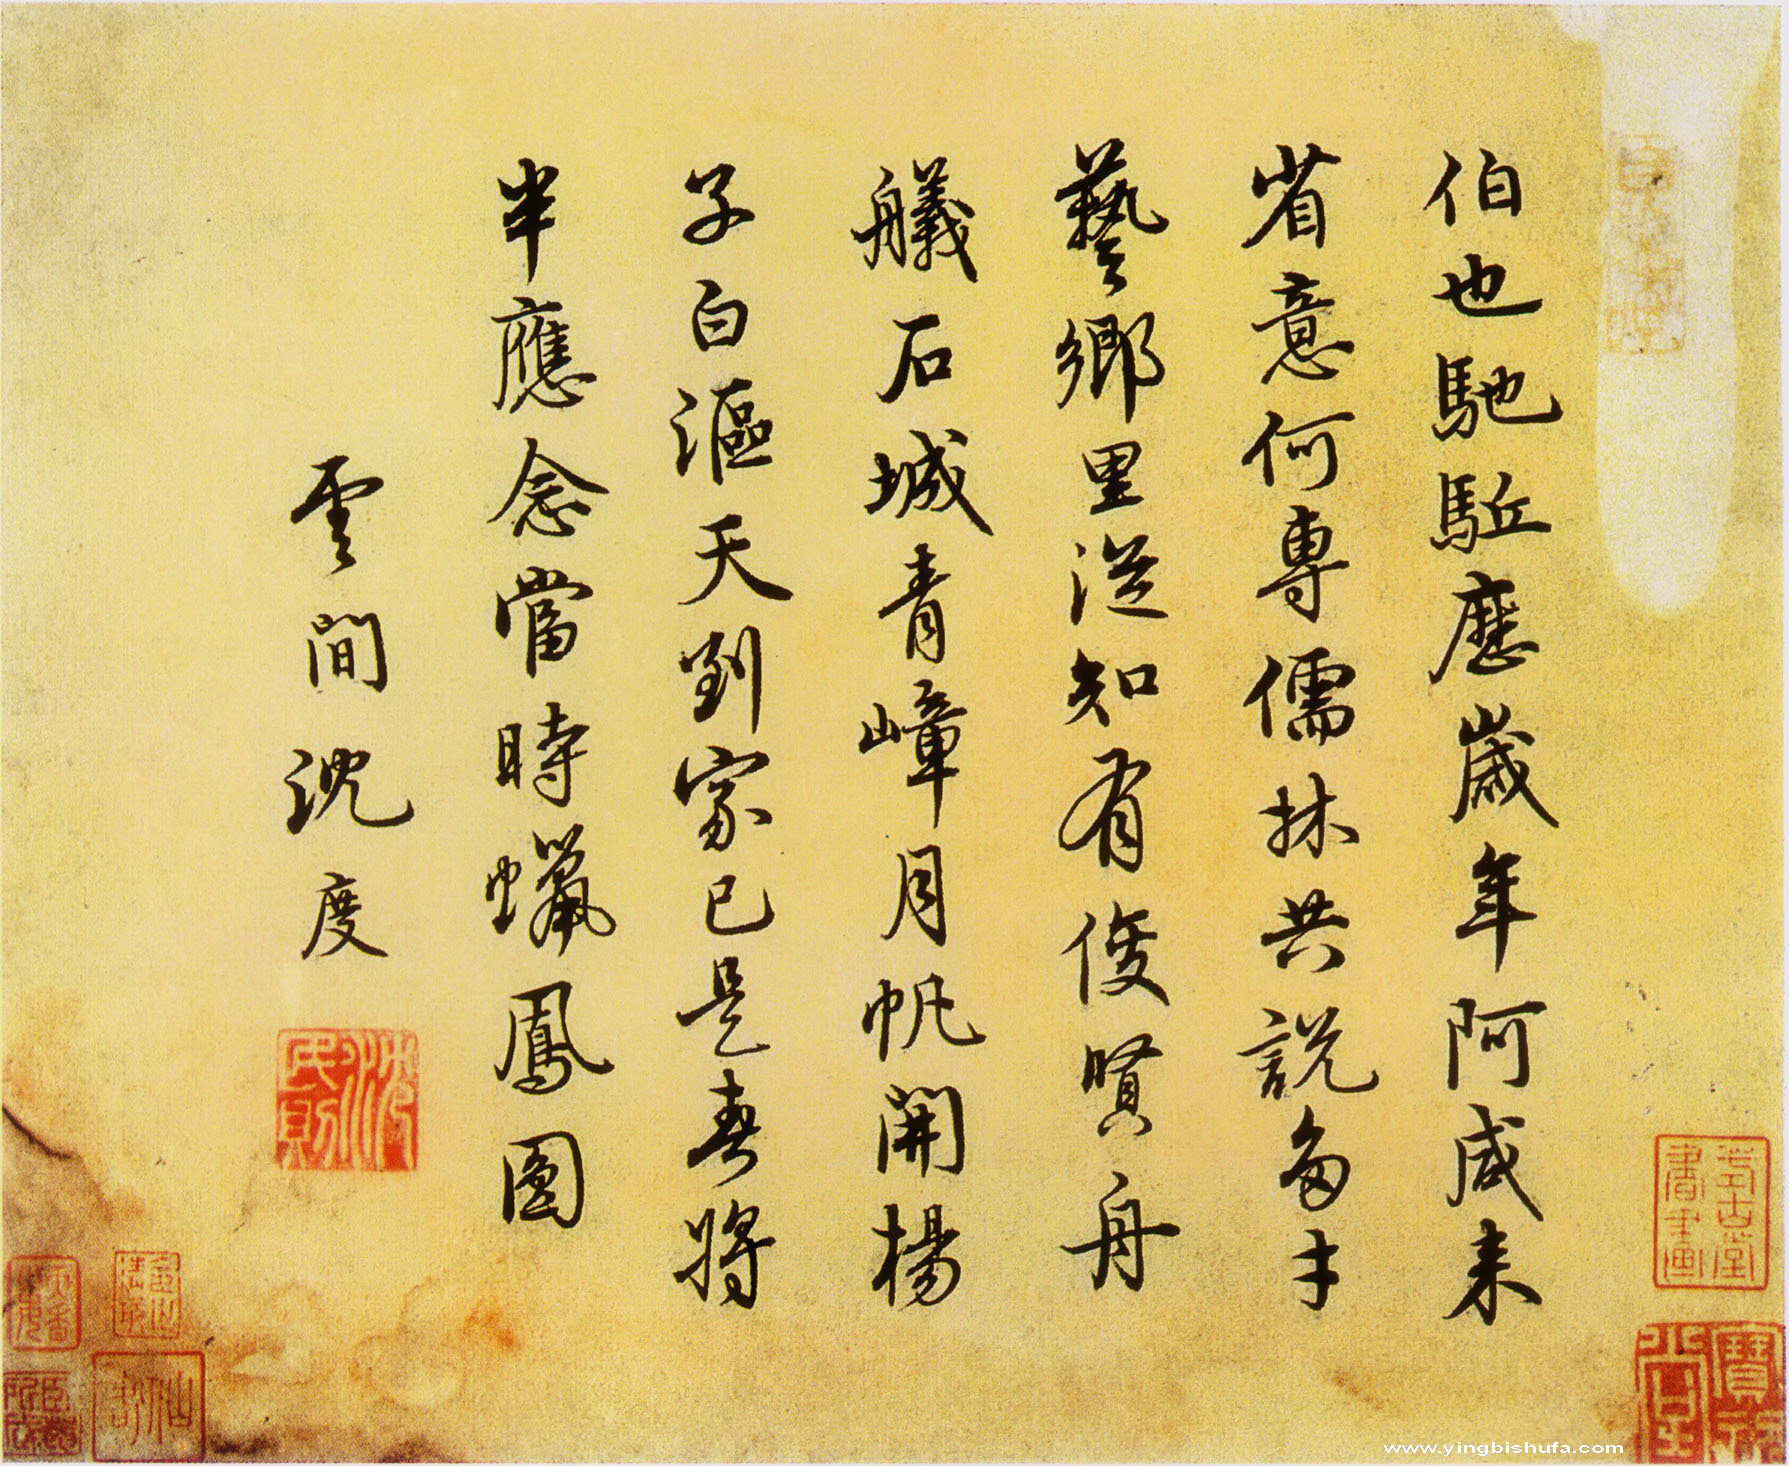 伯也馳駈歷歲年阿咸来
省意何専儒林共說多才
藝鄉里從知有俊賢舟
艤石城青嶂月帆開楊
子白漚天到家已是春將
半應念當時蠟鳳圓
雲間沈度
沈氏民則
寶
書畫
www.yingbishufa.com